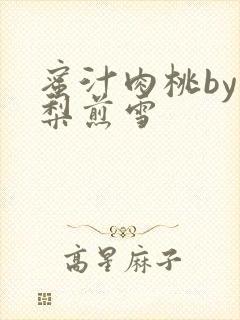 蜜汁肉桃by
梨煎雪
高星麻子